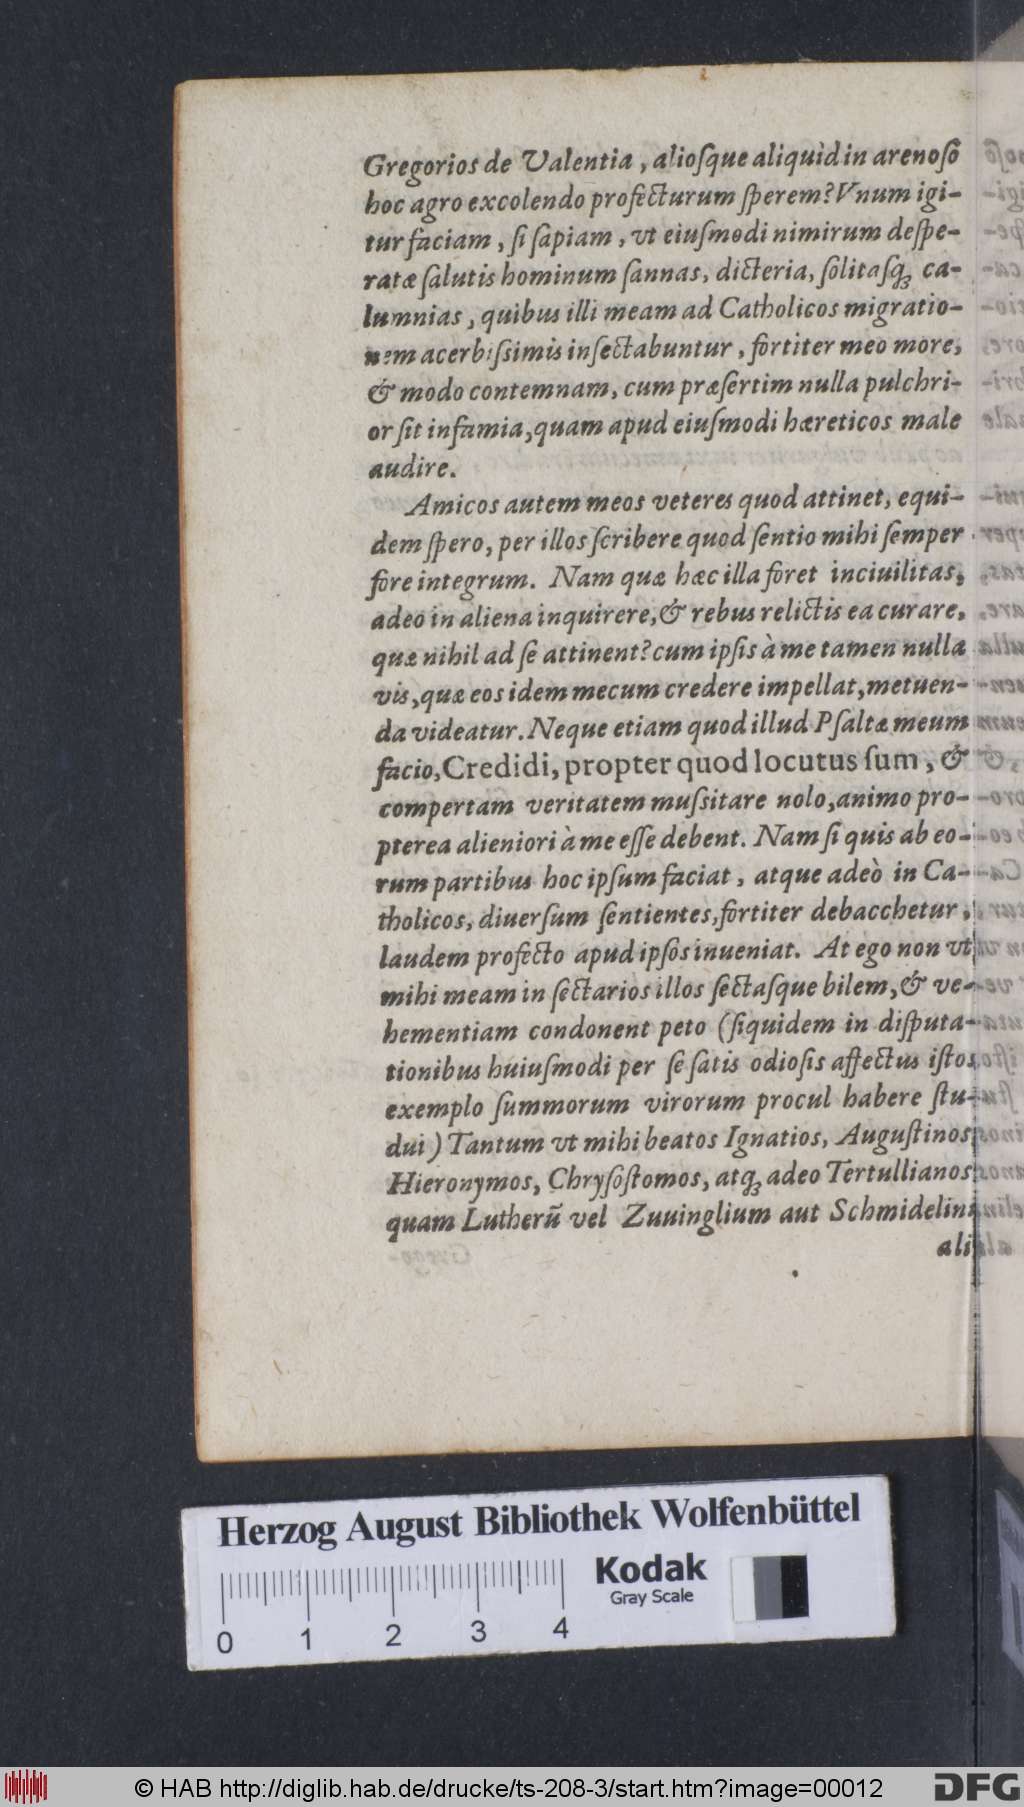 Gregorios de Valentia, alioſque aliquìd in arenoſo
hoc agro excolendo profecturum ſperem? Vnum igi-
tur faciam, ſi ſapiam, vt eiuſmodi nimirum deſpe-
ratæ ſalutis hominum ſannas, dicteria, ſolitaſq́ꝫ ca-
lumnias, quibus illi meam ad Catholicos migratio-
nem acerbiſsimis inſectabuntur, fortiter meo more,
& modo contemnam, cum præſertim nulla pulchri-
or ſit infamia, quam apud eiuſmodi hæreticos male
audire.
Amicos autem meos veteres quod attinet, equi-
dem ſpero, per illos ſcribere quod ſentio mihi ſemper
fore integrum. Nam quæ hæc illa foret inciuilitas,
adeo in aliena inquirere, & rebus relictis ea curare,
quæ nihil ad ſe attinent? cum ipſis à me tamen nulla
vis, quæ eos idem mecum credere impellat, metuen-
da videatur. Neque etiam quod illud Pſaltæ meum
facio, Credidi, propter quod locutus ſum, &
compertam veritatem muſsitare nolo, animo pro-
pterea alieniori à me eſſe debent. Nam ſi quis ab eo-
rum partibus hoc ipſum faciat, atque adeò in Ca-
tholicos, diuerſum ſentientes, fortiter debacchetur,
laudem profecto apud ipſos inueniat. At ego non vt
mihi meam in ſectarios illos ſectaſque bilem, & ve-
hementiam condonent peto (ſiquidem in diſputa-
tionibus huiuſmodi per ſe ſatis odioſis affectus iſtos
exemplo ſummorum virorum procul habere ſtu-
dui) Tantum vt mihi beatos Ignatios, Auguſtinos,
Hieronymos, Chryſoſtomos, atqꝫ adeo Tertullianos
quam Lutherū vel Zuuinglium aut Schmidelini
ali
Herzog August Bibliothek Wolfenbüttel
Kodak
Gray Scale
0 1 2 3 4
© HAB http://diglib.hab.de/drucke/ts-208-3/start.htm?image=00012
DFG